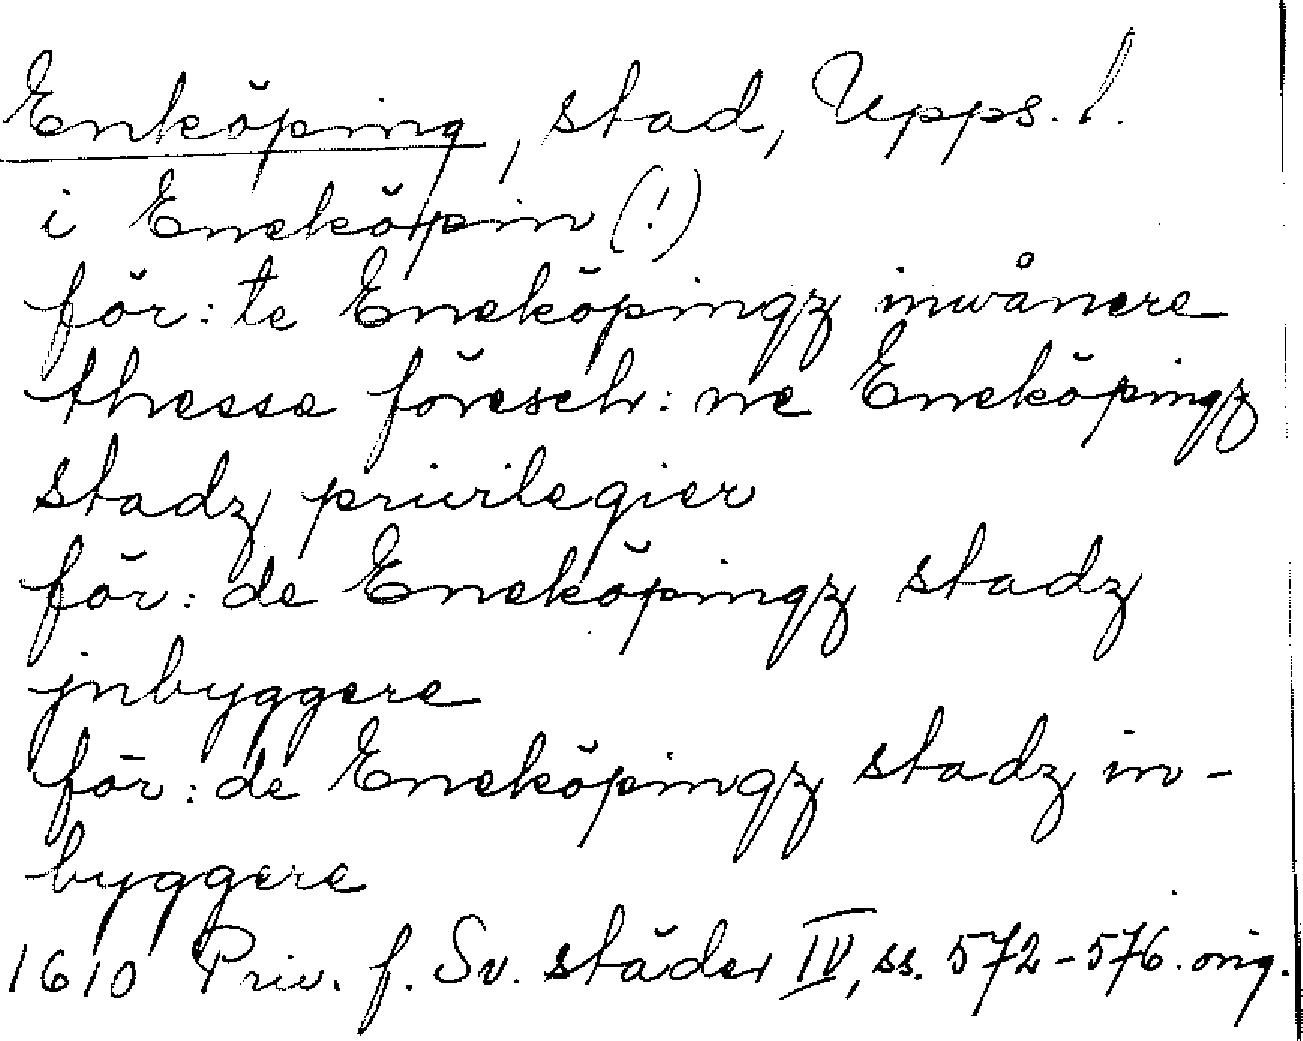 Enköping, stad, Upps. l.
i Eneköpin (!)
för: te Eneköpingz inwånere
thesseföresch: ne Eneköpingz
stadz privilegier
för: de Eneköpingz stadz
jnbyggere
för: de Eneköpingz stadz in-
byggere
1610 Priv. f. Sv. städer IV, ss. 572-576. orig.